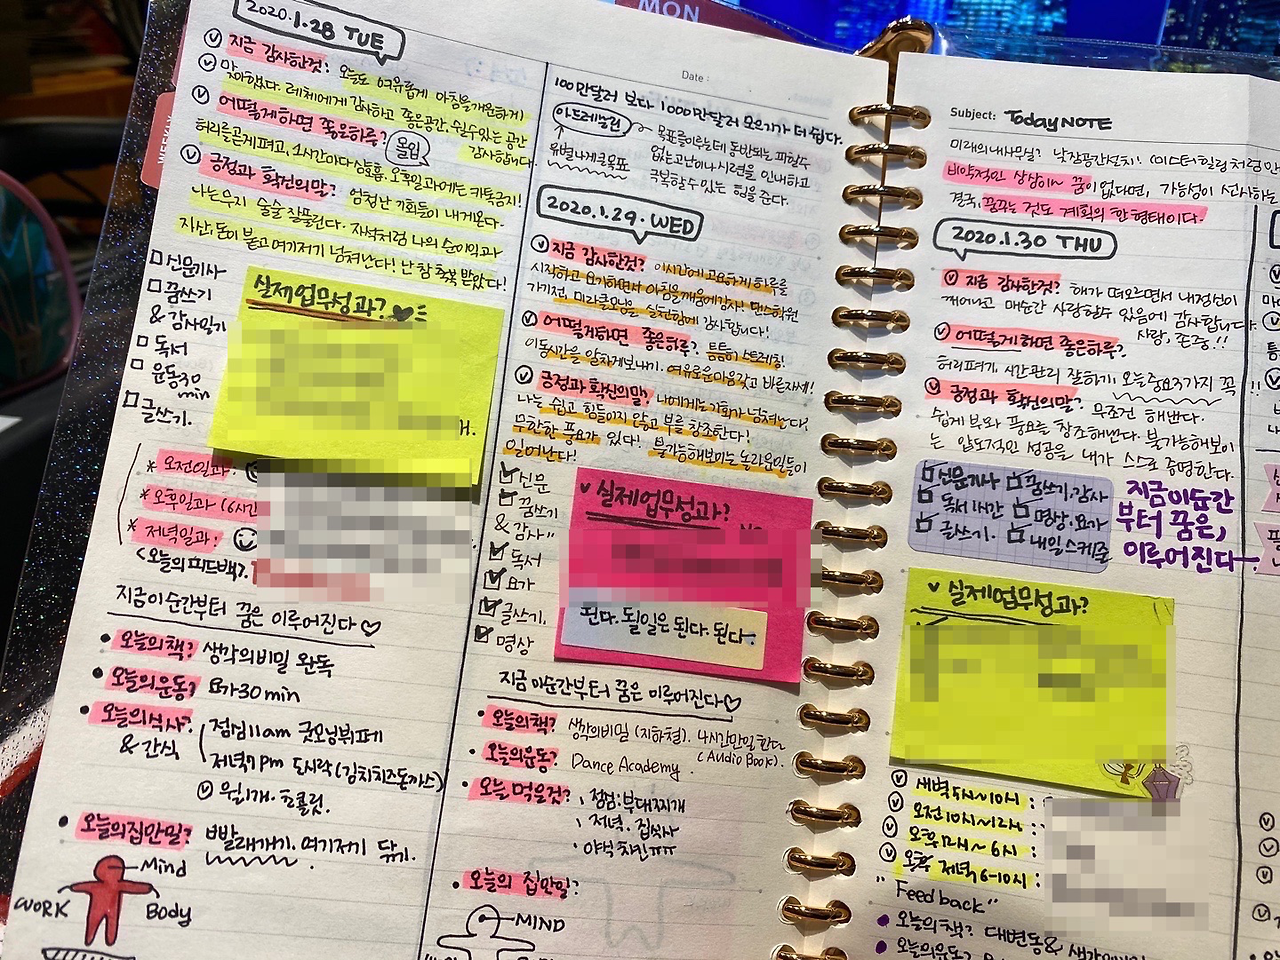 MON
2020.1.28 TUE
지금 감사한것? 오늘도 여유롭게 아침을 개운하게
맞이했다. 레체에게 감사하고 좋은공간, 쉴수있는 공간
감사합니다.
어떻게하면 좋은하루? 몰입
허리를곧게펴고, 1시간마다 심호흡, 오후일과에는 카톡금지!
긍정과 확신의말? 엄청난 기회들이 내게온다.
나는무지 술술 잘풀린다. 자석처럼 나의 순이익과
자산, 돈이 붙고 여기저기 넘쳐난다! 난 참 축복 받았다!
신문기사
꿈쓰기
& 감사일기
독서
운동30
min
글쓰기.
실제업무성과?
* 오전일과:
* 오후일과 (6시간
* 저녁일과:
<오늘의 피드백?
지금이순간부터 꿈은 이루어진다♡
• 오늘의책? 생각의비밀 완독
• 오늘의운동? 요가30min
• 오늘의식사? 점심11am 굿모닝뷔페
& 간식
저녁7pm 도시락(김치치즈돈까스)
우유1개. 초콜릿.
• 오늘의집안일? 빨래개기. 여기저기 닦기.
Mind
WORK
Body
Date :
100만달러 보다 1000만달러 모으기가 더 쉽다.
아드레날린
목표를이루는데 동반되는 피할수
없는고난이나 시련을 인내하고
극복할수 있는 힘을 준다.
2020.1.29. WED
지금 감사한것? 이시간에 고요하게 하루를
시작하고 요가하면서 아침을깨움에감사! 댄스학원
가기전, 미라클모닝을 실천함에 감사합니다!
어떻게하면 좋은하루? 틈틈히 스트레칭!
이동시간을 알차게보내기. 여유로운마음갖고 바른자세!
긍정과 확신의말? 나에게는기회가 넘쳐난다.
나는 쉽고 힘들이지 않고 부를 창조한다!
무한한 풍요가 있다! 불가능해보이는 놀라운일들이
일어난다!
신문
꿈쓰기
& 감사"
독서
요가
글쓰기.
명상
실제업무성과?
된다. 될일은 된다. 된다~
지금 이순간부터 꿈은 이루어진다♡
• 오늘의책? 생각의비밀 (지하철). 4시간만일한다
(Audio Book).
• 오늘의운동? Dance Academy
• 오늘 먹을것? , 점심:부대찌개
, 저녁. 집식사
, 야식 치킨ㅠㅠ
• 오늘의 집안일?
MIND
Subject: Today NOTE
비약적인 상상이나 꿈이 없다면, 가능성이 선사하는
결국, 꿈꾸는 것도 계획의 한 형태이다.
2020.1.30 THU
지금 감사한것? 해가 떠오르면서 내정신이
깨어나고 매순간 사랑할수 있음에 감사합니다.
사랑, 존중.!!
어떻게하면 좋은하루?
허리펴기, 시간관리 잘하기. 오늘중요3가지 꼭!!
긍정과 확신의말? 무조건 해낸다.
쉽게 부와 풍요를 창조해낸다. 불가능해보이
는 압도적인 성공을 내가 스스로 증명한다.
신문기사 꿈쓰기,감사
독서 1시간 명상.요가
글쓰기. 내일스케줄
지금이순간
부터 꿈은,
이루어진다~
실제업무성과?
새벽 5시~10시 :
오전10시~12시 :
오후12시~6시 :
저녁 6-10시 :
"Feedback"
• 오늘의책?
• 오늘의운동?